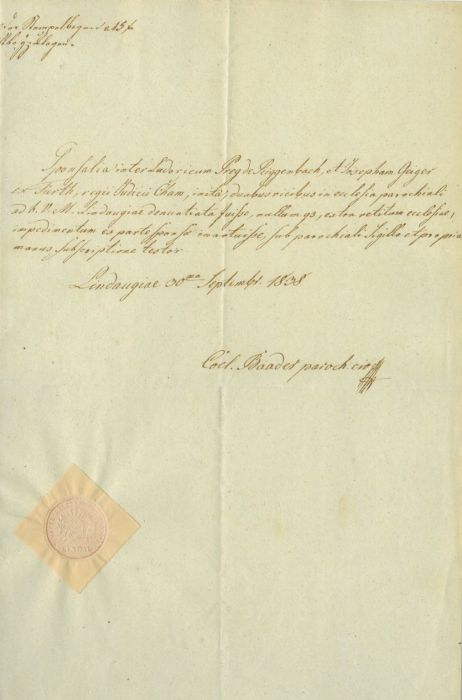 Stempelbogen a 15 x
Sponsalia inter Ludovicum Prey de Riggenbach, et Josepham Geiger
ex Fürth, regii Judicii Cham, inita, duabus vicibus in ecclesia parochiali
ad B. V. M. Lindaugiae denuntiata fuisse, nullumqs, extra vetitum ecclesiae,
impedimentum ex parte sponsi innotuisse, sub parochiali Sigillo et propria
manus Subscriptione testor.
Lindaugiae 30ma Septembr. 1838
Coel. Baader paroch.